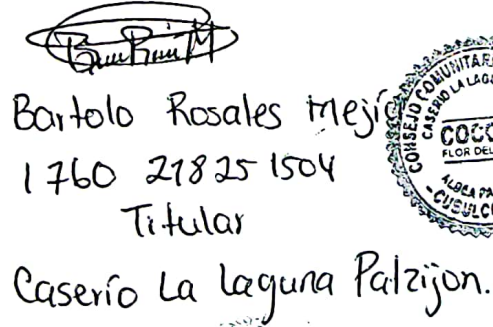 Bartolo Rosales Mejía
1760 21825 1504
Titular
Caserío La Laguna Palzijon.
CONSEJO COMUNITAR
CASERIO LA LAGU
COCO
FLOR DEL
ALDEA PA
- CUBULC